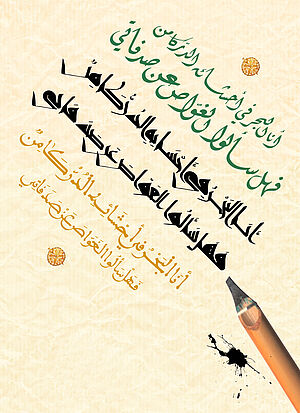 أنا البحر في أحشائه الدر كامن
فهل سألوا الغواص عن صدفاتي
أنا البحر في أحشائه الدر كامن
فهل سألوا الغواص عن صدفاتي
أنا البحر في أحشائه الدر كامن
فهل سألوا الغواص عن صدفاتي